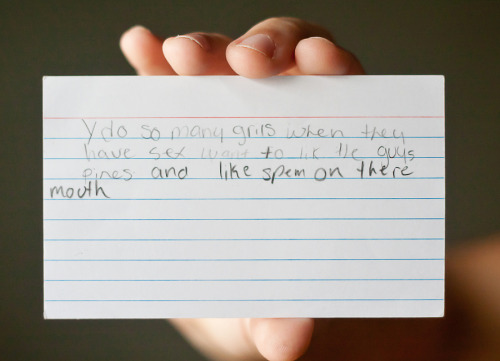 Y do so many grils when they
have sex want to lik the guys
pines and like spem on there
mouth